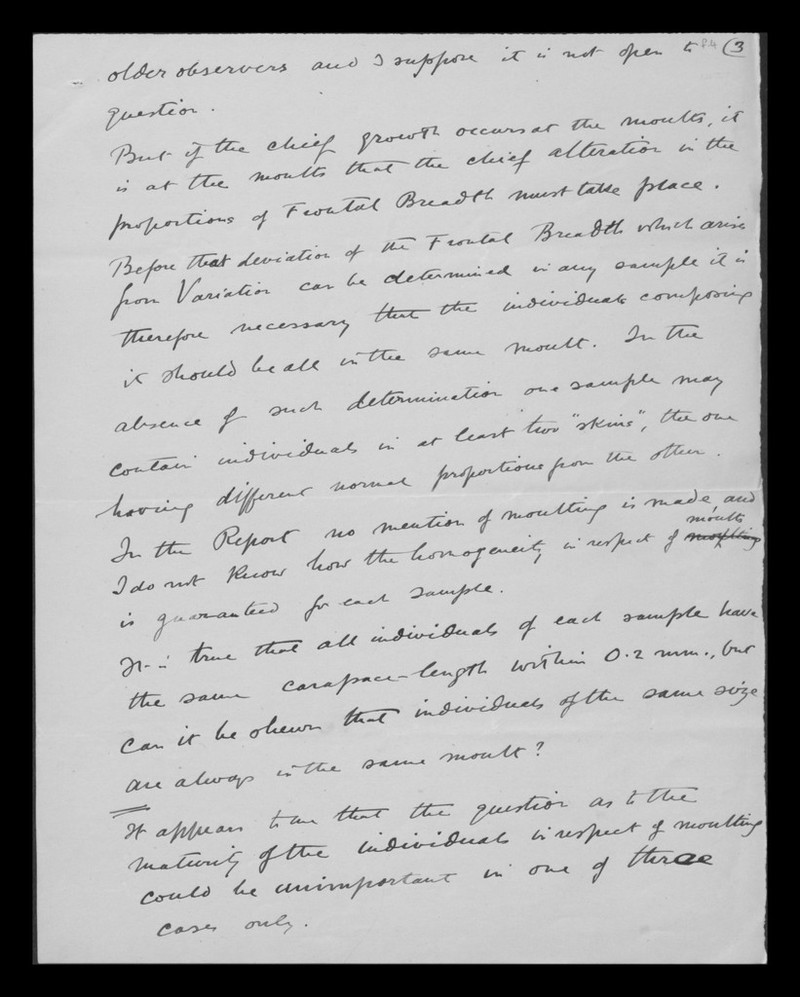 older observers and I suppose it is not open to 84 (3
question.
But if the chief growth occurs at the moults, it
is at the moults that the chief alteration in the
proportions of Frontal Breadth must take place.
Before that deviation of the Frontal Breadth which arises
from Variation can be determined in any sample it is
therefore necessary that the individuals composing
it should be all in the same moult. In the
absence of such determination one sample may
contain individuals in at least two "skins", the one
having different normal proportions from the other.
In the Report no mention of moulting is made, and
moults
I do not know how the homogeneity in respect of moulting
is guaranteed for each sample.
It is true that all individuals of each sample have
the same carapace-length within 0.2 mm., but
can it be shewn that individuals of the same size
are always in the same moult?
It appears to me that the question as to the
maturity of the individuals in respect of moulting
could be unimportant in one of three
cases only.